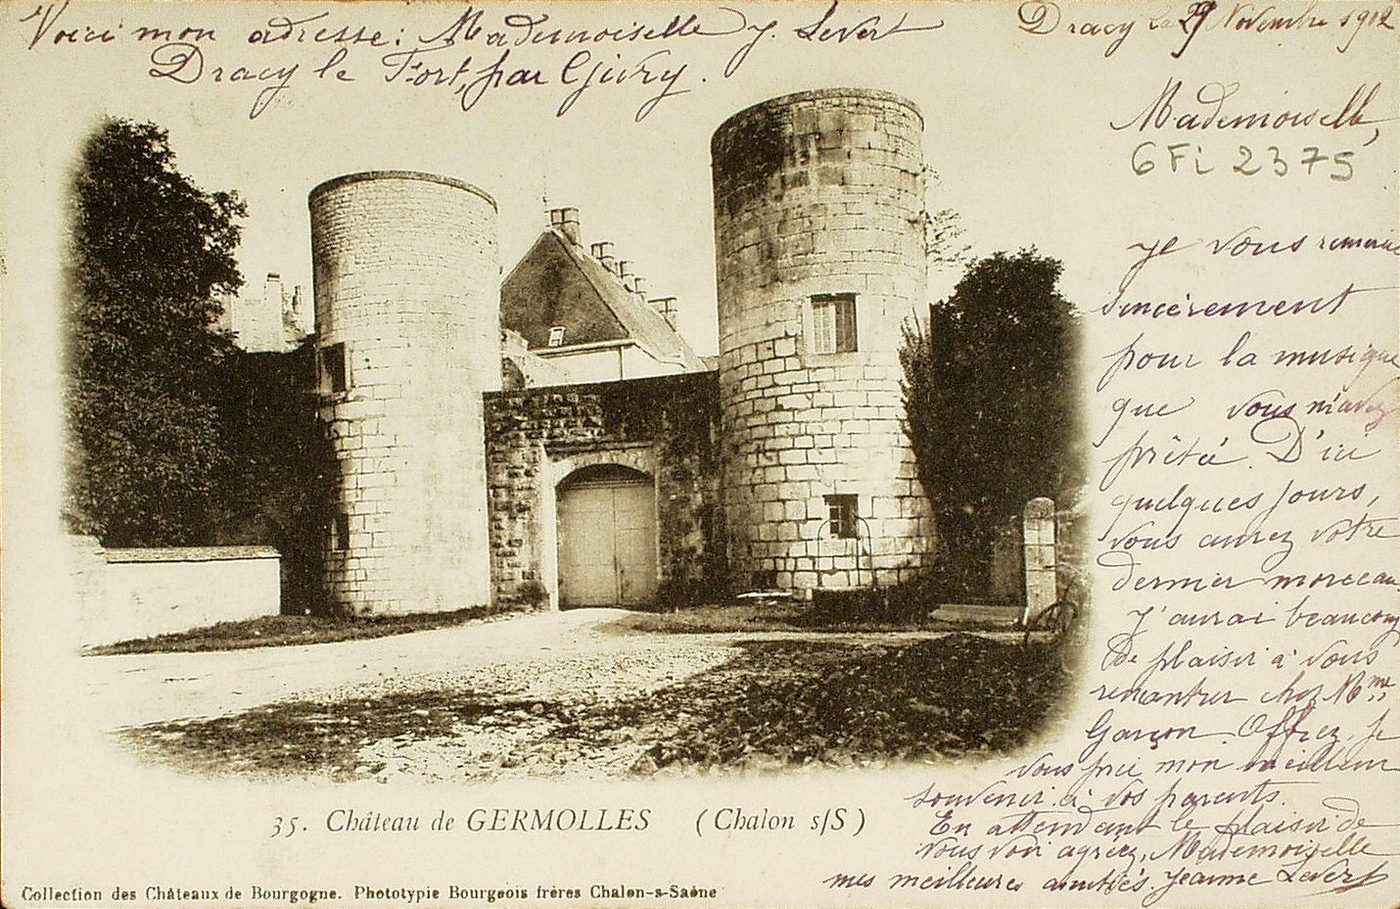 Voici mon adresse: Mademoiselle J. Levert
Dracy le Fort, par Givry.
Dracy le 29 Novembre 1902
Mademoiselle,
6Fi 2375
Je vous remercie
sincèrement
pour la musique
que vous m'avez
prêtée. D'ici
quelques jours,
vous aurez votre
dernier morceau
J'aurai beaucoup
de plaisir à vous
rencontrer chez Mme
Garçon. Offrez, je
vous prie mon meilleur
souvenir à vos parents.
En attendant le plaisir de
vous voir agréez, Mademoiselle
mes meilleures amitiés. Jeanne Levert
35. Château de GERMOLLES (Chalon s/S)
Collection des Châteaux de Bourgogne. Phototypie Bourgeois frères Chalon-s-Saône